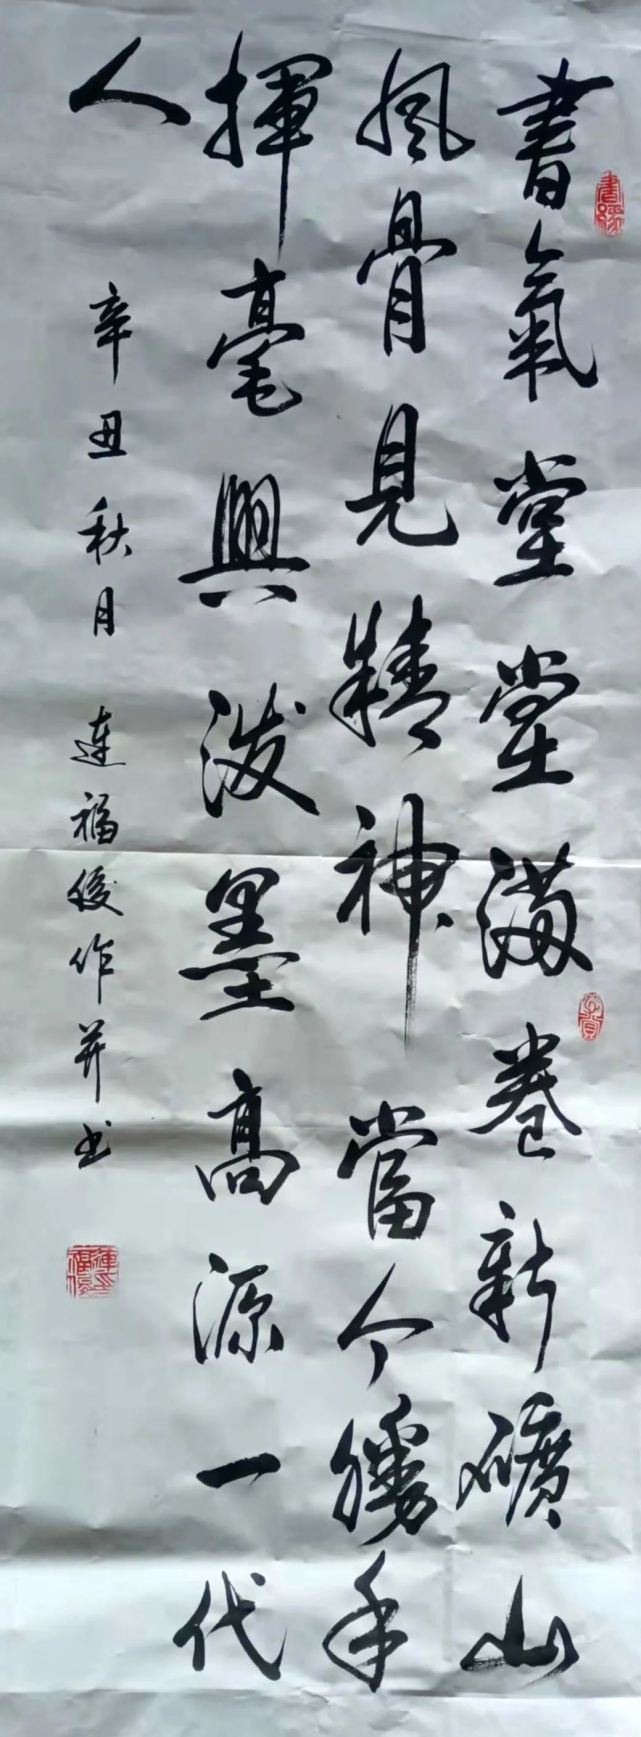 書氣堂堂滿卷新礦山
風骨見精神當今勝手
揮毫興潑墨高源一代
人
辛丑秋月連福俊作并书